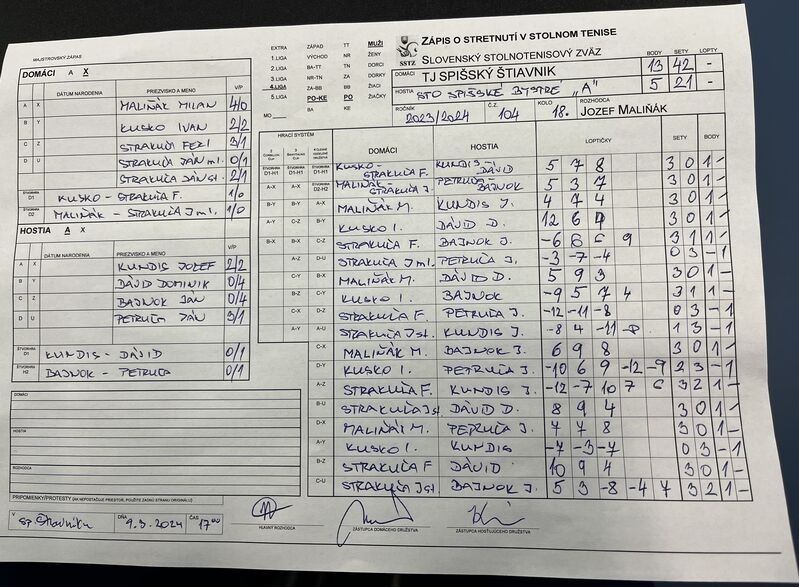 MAJSTROVSKÝ ZÁPAS
DOMÁCI A X
DÁTUM NARODENIA PRIEZVISKO A MENO V/P
A X MALIŇÁK MILAN 4/0
B Y KUSKO IVAN 2/2
C Z STRAKUĽA FERI 3/1
D U STRAKUĽA JÁN ml. 0/1
STRAKUĽA JÁN st. 2/1
ŠTVORHRA D1 KUSKO - STRAKUĽA F. 1/0
ŠTVORHRA D2 MALIŇÁK - STRAKUĽA J ml. 1/0
HOSTIA A X
DÁTUM NARODENIA PRIEZVISKO A MENO V/P
A X KUNDIS JOZEF 2/2
B Y DÁVID DOMINIK 0/4
C Z BAJNOK JÁN 0/4
D U PETRUĽA JÁN 3/1
ŠTVORHRA D1 KUNDIS - DÁVID 0/1
ŠTVORHRA H2 BAJNOK - PETRUĽA 0/1
DOMÁCI
HOSTIA
ROZHODCA
PRIPOMIENKY/PROTESTY (AK NEPOSTAČUJE PRIESTOR, POUŽITE ZADNÚ STRANU ORIGINÁLU)
V SP. ŠTIAVNIKU DŇA 9.3.2024 ČAS 17 00
HLAVNÝ ROZHODCA
ZÁSTUPCA DOMÁCEHO DRUŽSTVA
ZÁSTUPCA HOSŤUJÚCEHO DRUŽSTVA
EXTRA ZÁPAD TT MUŽI
1.LIGA VÝCHOD NR ŽENY
2.LIGA BA-TT TN DORCI
3.LIGA NR-TN ZA DORKY
4.LIGA ZA-BB BB ŽIACI
5.LIGA PO-KE PO ŽIAČKY
MO BA KE
SSTZ
ZÁPIS O STRETNUTÍ V STOLNOM TENISE
SLOVENSKÝ STOLNOTENISOVÝ ZVÄZ
BODY SETY LOPTY
DOMÁCI TJ SPIŠSKÝ ŠTIAVNIK 13 42 -
HOSTIA STO SPIŠSKÉ BYSTRÉ „A" 5 21 -
ROČNÍK 2023/2024 Č.Z. 104 KOLO 18. ROZHODCA JOZEF MALIŇÁK
HRACÍ SYSTÉM DOMÁCI HOSTIA LOPTIČKY SETY BODY
ŠTVORHRA D1-H1 KUSKO - STRAKUĽA F. KUNDIS - DÁVID 5 7 8 3 0 1 -
A-X A-X ŠTVORHRA D2-H2 MALIŇÁK - STRAKUĽA J. PETRUĽA - BAJNOK 5 3 7 3 0 1 -
B-Y B-Y A-X MALIŇÁK M. KUNDIS J. 4 7 4 3 0 1 -
A-Y C-Z B-Y KUSKO I. DÁVID D. 12 6 4 3 0 1 -
B-X B-X C-Z STRAKUĽA F. BAJNOK J. -6 6 6 9 3 1 1 -
A-Z D-U STRAKUĽA J ml. PETRUĽA J. -3 -7 -4 0 3 - 1
B-X MALIŇÁK M. DÁVID D. 5 9 3 3 0 1 -
B-Z C-Y KUSKO I. BAJNOK -9 5 7 4 3 1 1 -
C-X D-Z STRAKUĽA F. PETRUĽA J. -12 -11 -8 0 3 - 1
A-Y A-U STRAKUĽA J st. KUNDIS J. -8 4 -11 -8 1 3 - 1
C-X MALIŇÁK M. BAJNOK J. 6 9 8 3 0 1 -
D-Y KUSKO I. PETRUĽA J. -10 6 9 -12 -9 2 3 - 1
A-Z STRAKUĽA F. KUNDIS J. -12 -7 10 7 6 3 2 1 -
B-U STRAKUĽA J st. DÁVID D. 8 9 4 3 0 1 -
D-X MALIŇÁK M. PETRUĽA J. 7 7 8 3 0 1 -
A-Y KUSKO I. KUNDIS -7 -3 -7 0 3 - 1
B-Z STRAKUĽA F DÁVID 10 9 4 3 0 1 -
C-U STRAKUĽA J st. BAJNOK J. 5 3 -8 -4 7 3 2 1 -